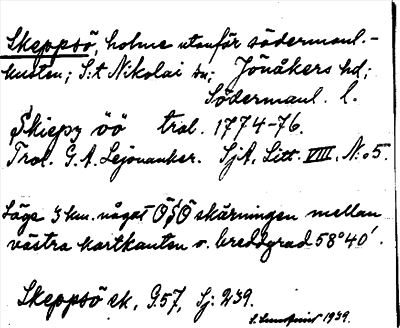 Skeppsö, holme utanför södermanl.-
kusten; S:t Nikolai sn; Jönåkers hd;
Södermanl. l.
Skiepz öö trol. 1774-76.
Trol. G. A. Lejonanker. SjA, Litt. VIII, N:o 5.
Läge 3 km. något ÖSÖ skärningen mellan
västra kartkanten o. breddgrad 58°40'.
Skeppsö ek, G.57, Sj: 9/39.
S. 1939.